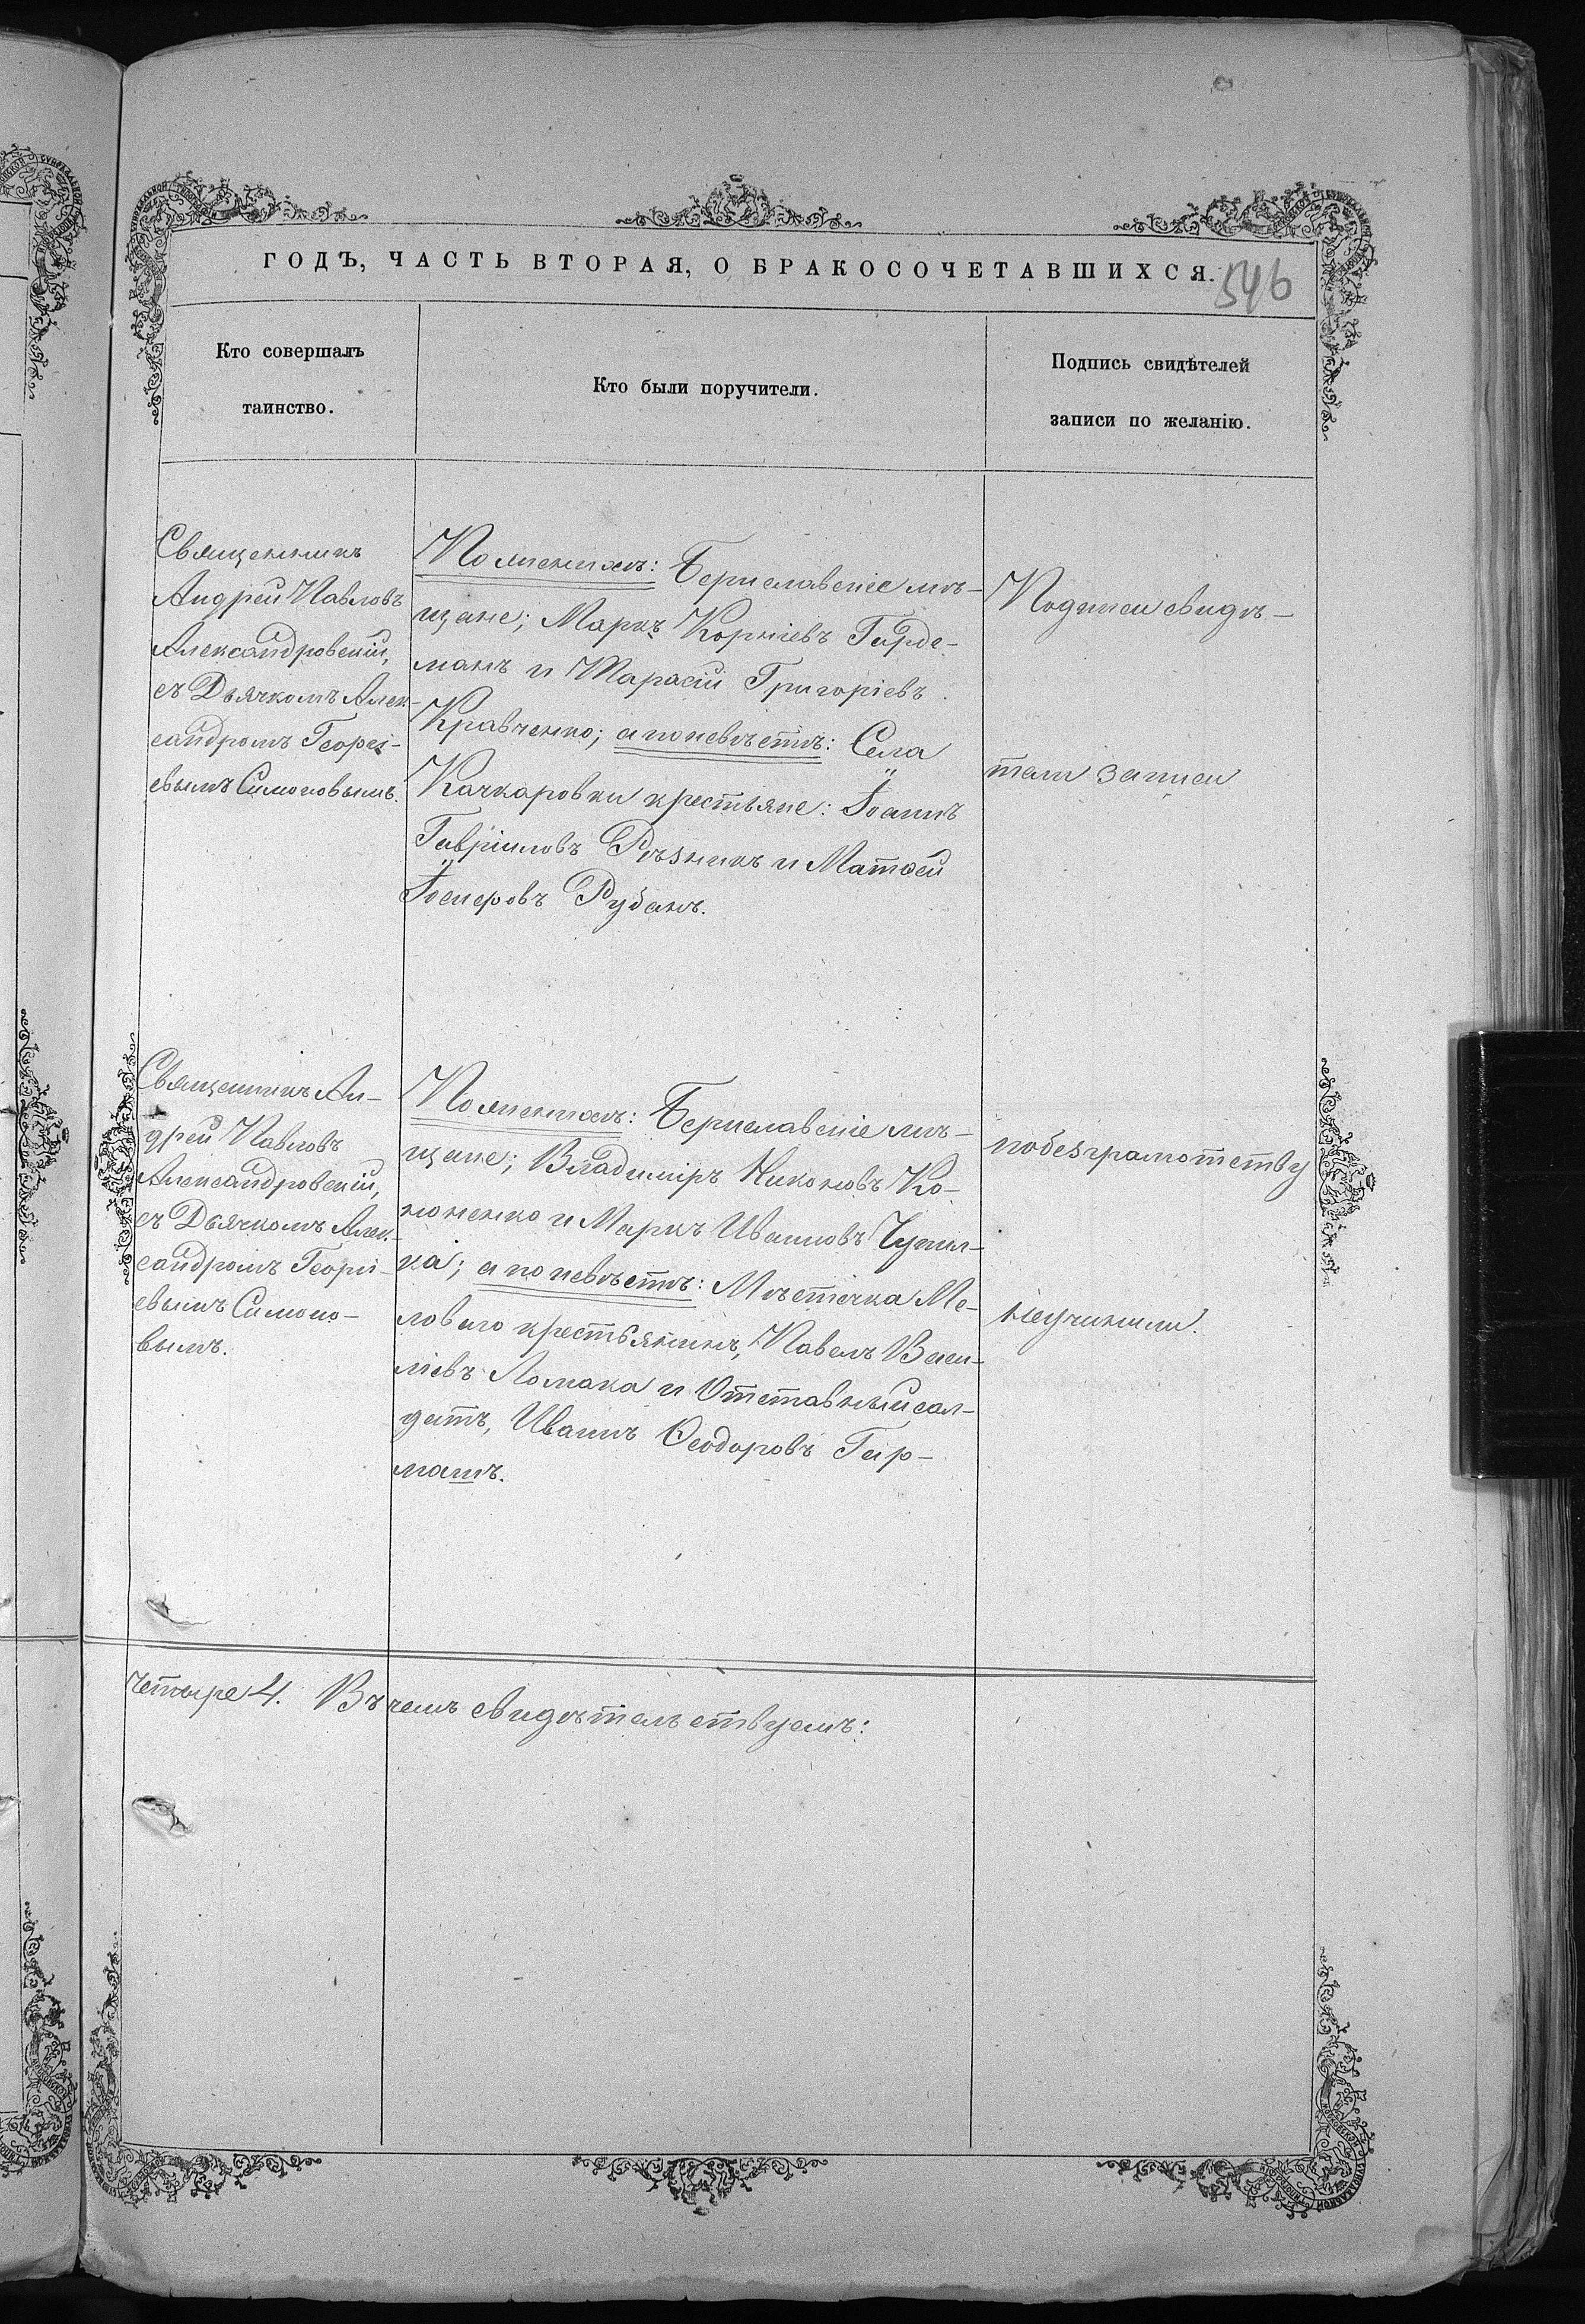 ГОДЪ, ЧАСТЬ ВТОРАЯ, О БРАКОСОЧЕТАВШИХСЯ.
546
Кто совершалъ
таинство.
Кто были поручители.
Подпись свидѣтелей
записи по желанію.
Священникъ
Андрей Павловъ
Александровскій,
съ Дьячкомъ Алек-
сандромъ Георгі-
евымъ Симоновымъ.
По женихѣ: Бериславскіе мѣ-
щане; Маркъ Корніевъ Гирде-
манъ и Тарасій Григоріевъ
Кравченко; а по невѣстѣ: Села
Качкаровки крестьяне: Іоаннъ
Гавріиловъ Рѣзникъ и Матѳей
Іосифовъ Рубанъ.
Подписи свидѣ-
тели записи
Священникъ Ан-
дрей Павловъ
Александровскій,
съ Дьячкомъ Алек-
сандромъ Георгі-
евымъ Симоно-
вымъ.
По женихѣ: Бериславскіе мѣ-
щане; Владиміръ Никоновъ Ко-
ноненко и Маркъ Ивановъ
ка; а по невѣстѣ: Мѣстечка Ме-
ловаго крестьянинъ, Павелъ Васи-
ліевъ Ломака и Отставный сал-
датъ, Иванъ Ѳеодоровъ Гар-
машъ.
по безграмотству
неучинили.
четыре 4. Въ чемъ свидѣтельствуемъ: